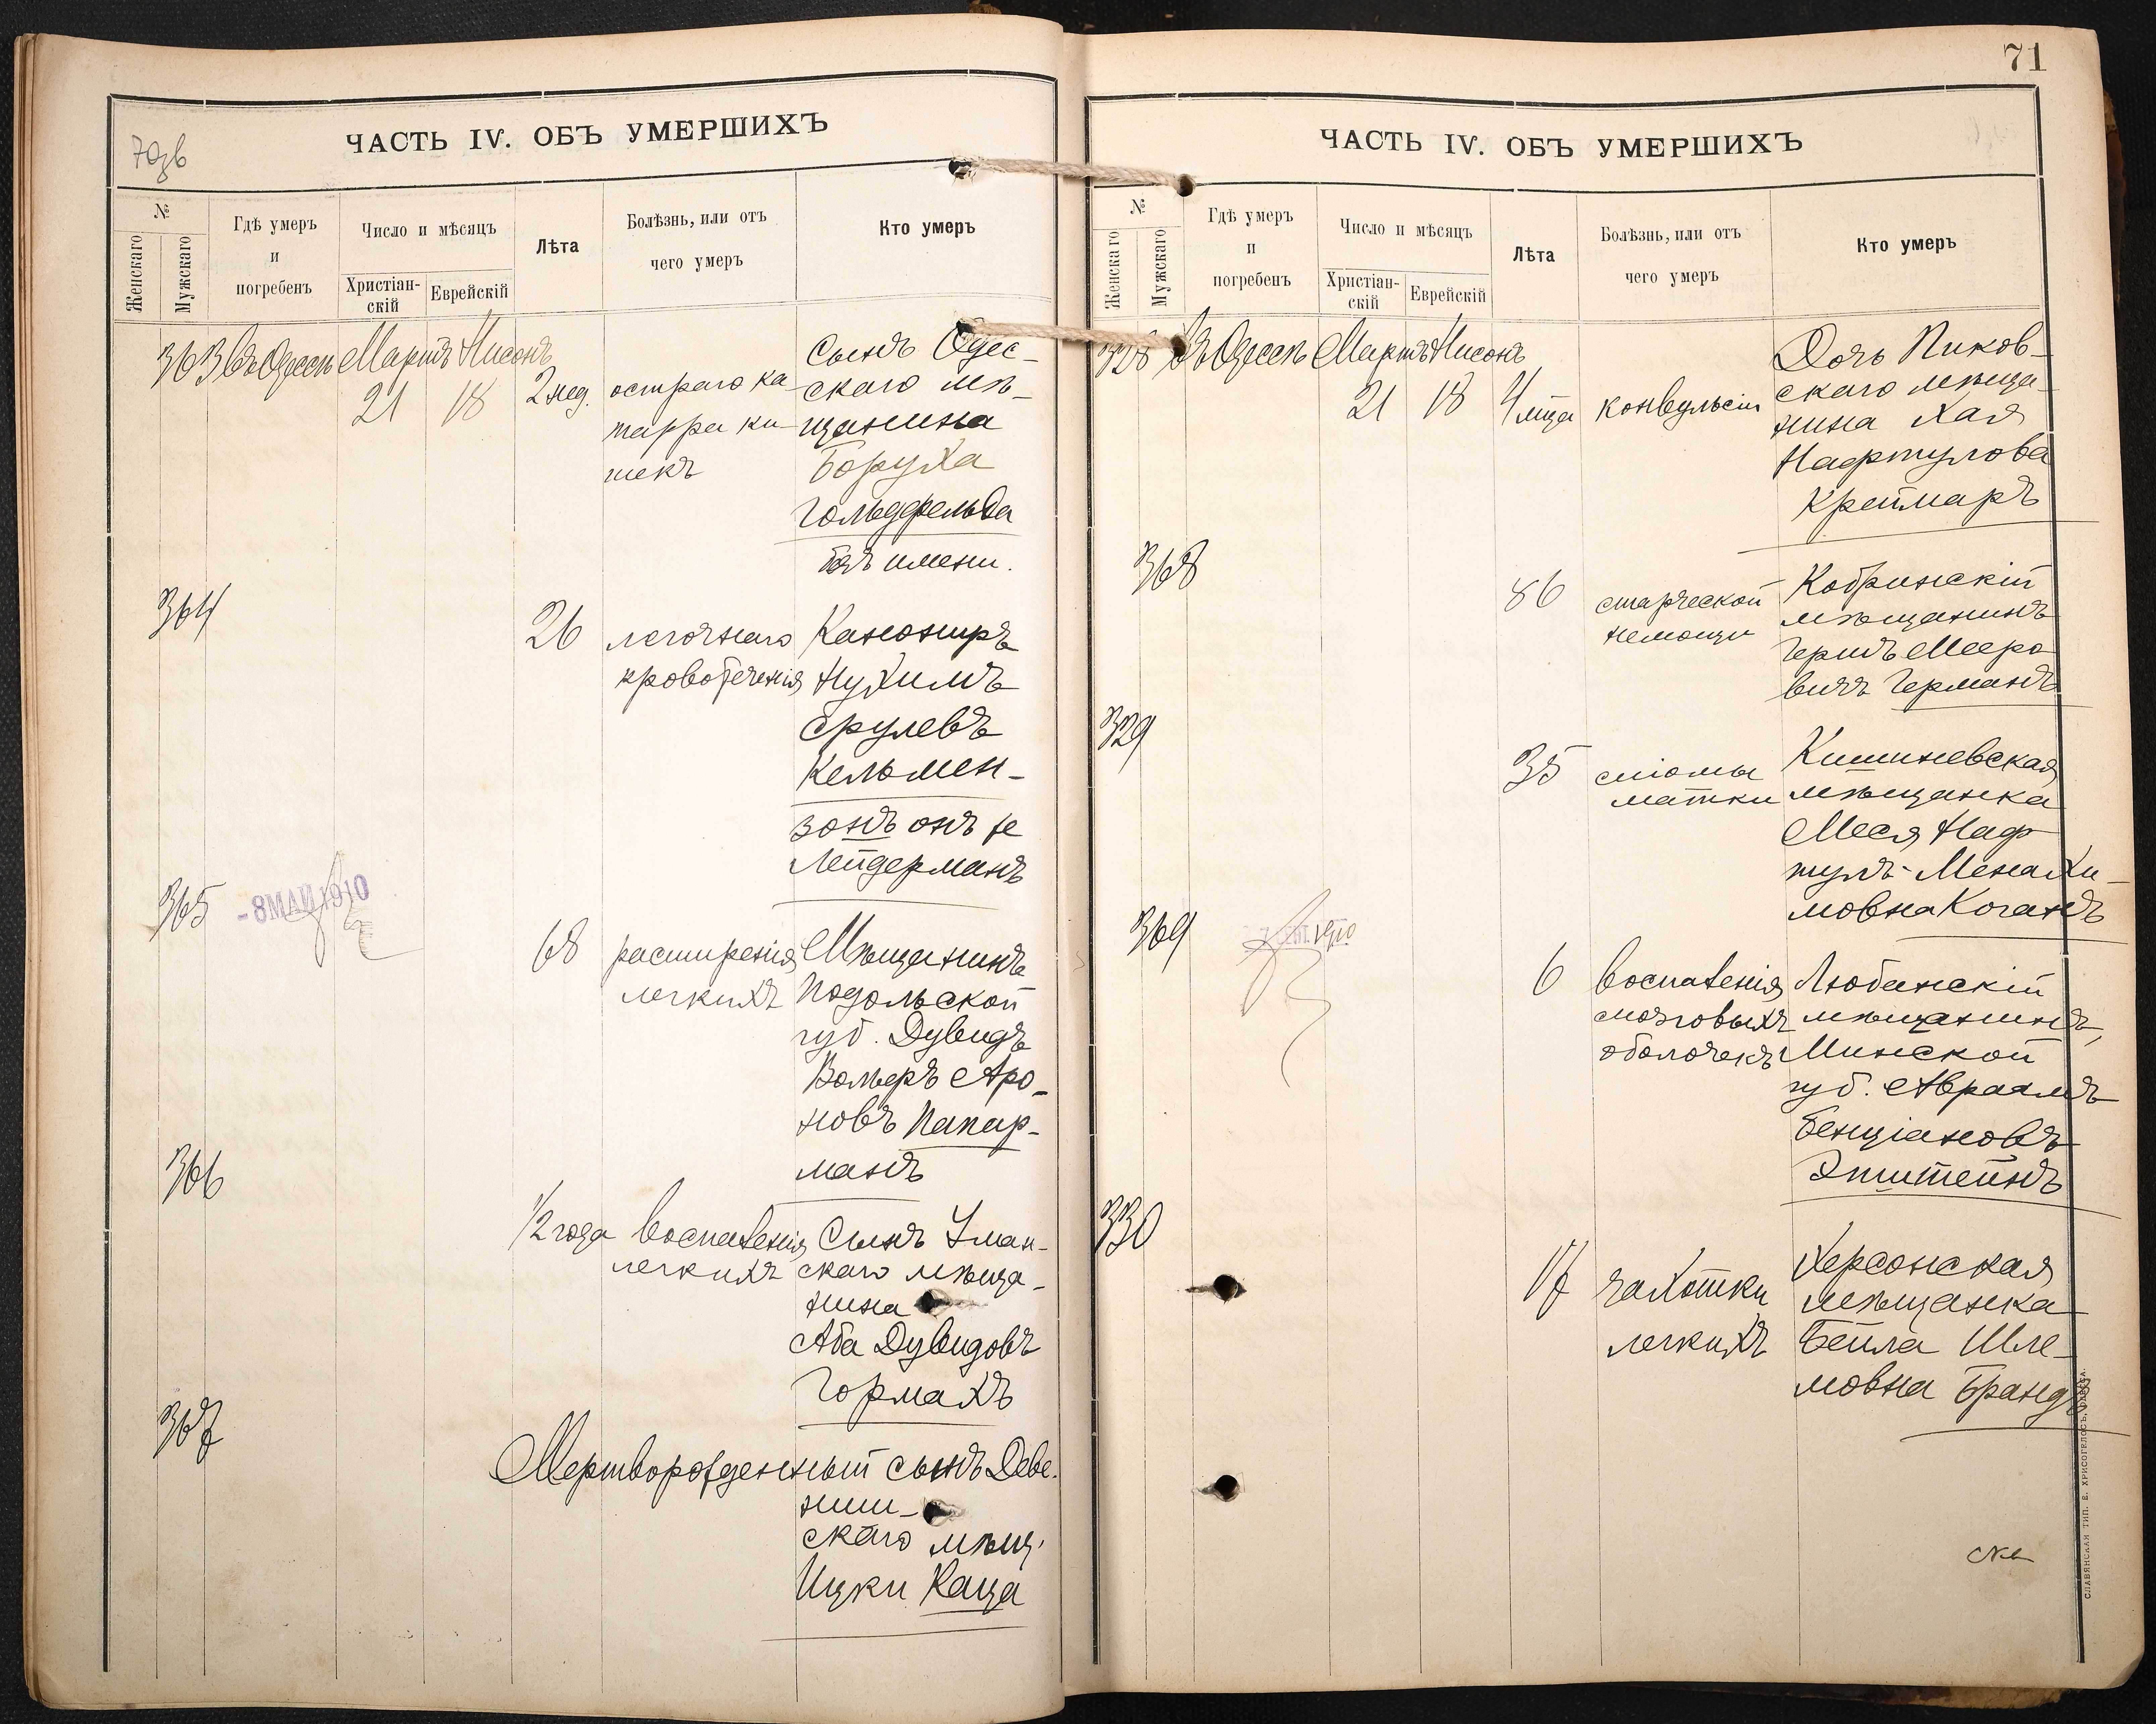 70зв
ЧАСТЬ IV. ОБЪ УМЕРШИХЪ
№
Женскаго
Мужскаго
Гдѣ умеръ
и
погребенъ
Число и мѣсяцъ
Христіан-
скій
Еврейскій
Лѣта
Болѣзнь, или отъ
чего умеръ
Кто умеръ
363 Въ Одессѣ Мартъ Нисонъ
21 18 2 нед.
остраго ка-
тарра ки-
шекъ
Сынъ Одес-
скаго мѣ-
щанина
Боруха
Гольдфельда
безъ имени.
364
26
легочнаго
кровотеченія
Канониръ
Нухимъ
Срулевъ
Кельмен-
зонъ онъ же
Лейдерманъ
365
-8 МАЙ 1910
68
расширенія
легкихъ
Мѣщанинъ
Подольской
губ. Дувидъ
Вольеръ Аро-
новъ Папир-
манъ
366
1/2 года
воспаленія
легкихъ
Сынъ Уман-
скаго мѣща-
нина
Аба Дувидовъ
Гормахъ
367
Мертворожденный сынъ Деве-
ниш-
скаго мѣщ.
Ицки Каца
71
ЧАСТЬ IV. ОБЪ УМЕРШИХЪ
№
Женскаго
Мужскаго
Гдѣ умеръ
и
погребенъ
Число и мѣсяцъ
Христіан-
скій
Еврейскій
Лѣта
Болѣзнь, или отъ
чего умеръ
Кто умеръ
328 Въ Одессѣ Мартъ Нисонъ
21 18 4 мца конвульсіи
Дочь Пиков-
скаго мѣща-
нина Хая
Нафтулова
Креймаръ
368
86
старческой
немощи
Кобринскій
мѣщанинъ
Гершъ Мееро
вичъ Германъ
329
35
міомы
матки
Кишиневская
мѣщанка
Меся Наф
тулъ-Менахи-
мовна Коганъ
369
1910
6
воспаленія
мозговыхъ
оболочекъ
Любанскій
мѣщанинъ,
Минской
губ. Авраамъ
Бенціановъ
Эпштейнъ
330
17
чахотки
легкихъ
Херсонская
мѣщанка
Бейла Шле-
мовна Брандъ
СЛАВЯНСКАЯ ТИП. Е. ХРИСОГЕЛОСЪ, ОДЕССА.